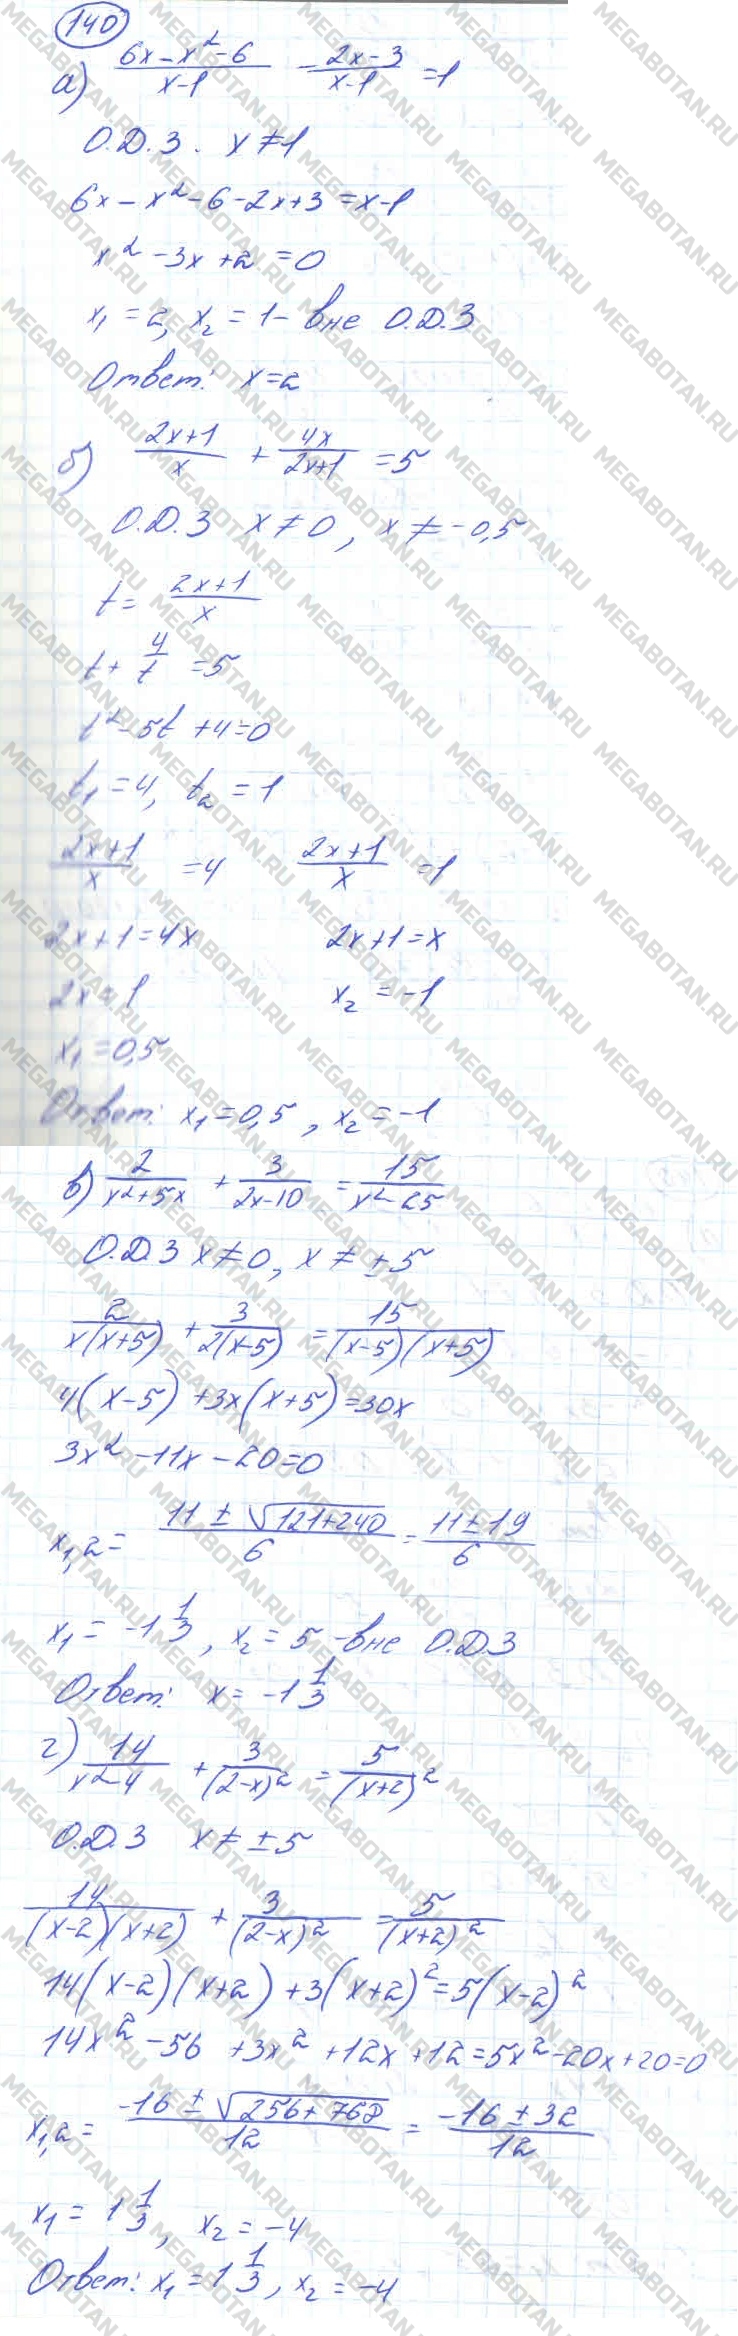 140
а) (6x-x²-6)/(x-1) - (2x-3)/(x-1) = 1
О.Д.З. x≠1
6x-x²-6-2x+3=x-1
x²-3x+2=0
x₁=2, x₂=1- вне О.Д.З
Ответ: x=2
б) (2x+1)/x + 4x/(2x+1) = 5
О.Д.З x≠0, x≠-0,5
t= (2x+1)/x
t+ 4/t =5
t²-5t+4=0
t₁=4, t₂=1
(2x+1)/x =4 (2x+1)/x =1
2x+1=4x 2x+1=x
2x=1 x₂=-1
x₁=0,5
Ответ: x₁=0,5, x₂=-1
в) 2/(x²+5x) + 3/(2x-10) = 15/(x²-25)
О.Д.З x≠0, x≠±5
2/(x(x+5)) + 3/(2(x-5)) = 15/((x-5)(x+5))
4(x-5)+3x(x+5)=30x
3x²-11x-20=0
x₁,₂= (11±√(121+240))/6 = (11±19)/6
x₁=-1 1/3, x₂=5 -вне О.Д.З
Ответ: x=-1 1/3
г) 14/(x²-4) + 3/(2-x)² = 5/(x+2)²
О.Д.З x≠±5
14/((x-2)(x+2)) + 3/(2-x)² = 5/(x+2)²
14(x-2)(x+2)+3(x+2)²=5(x-2)²
14x²-56+3x²+12x+12=5x²-20x+20=0
x₁,₂= (-16±√(256+768))/12 = (-16±32)/12
x₁=1 1/3, x₂=-4
Ответ: x₁=1 1/3, x₂=-4
MEGABOTAN.RU